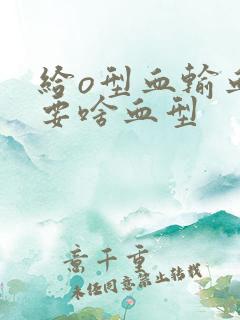 给o型血输血
要啥血型
意千重
未经同意禁止转载